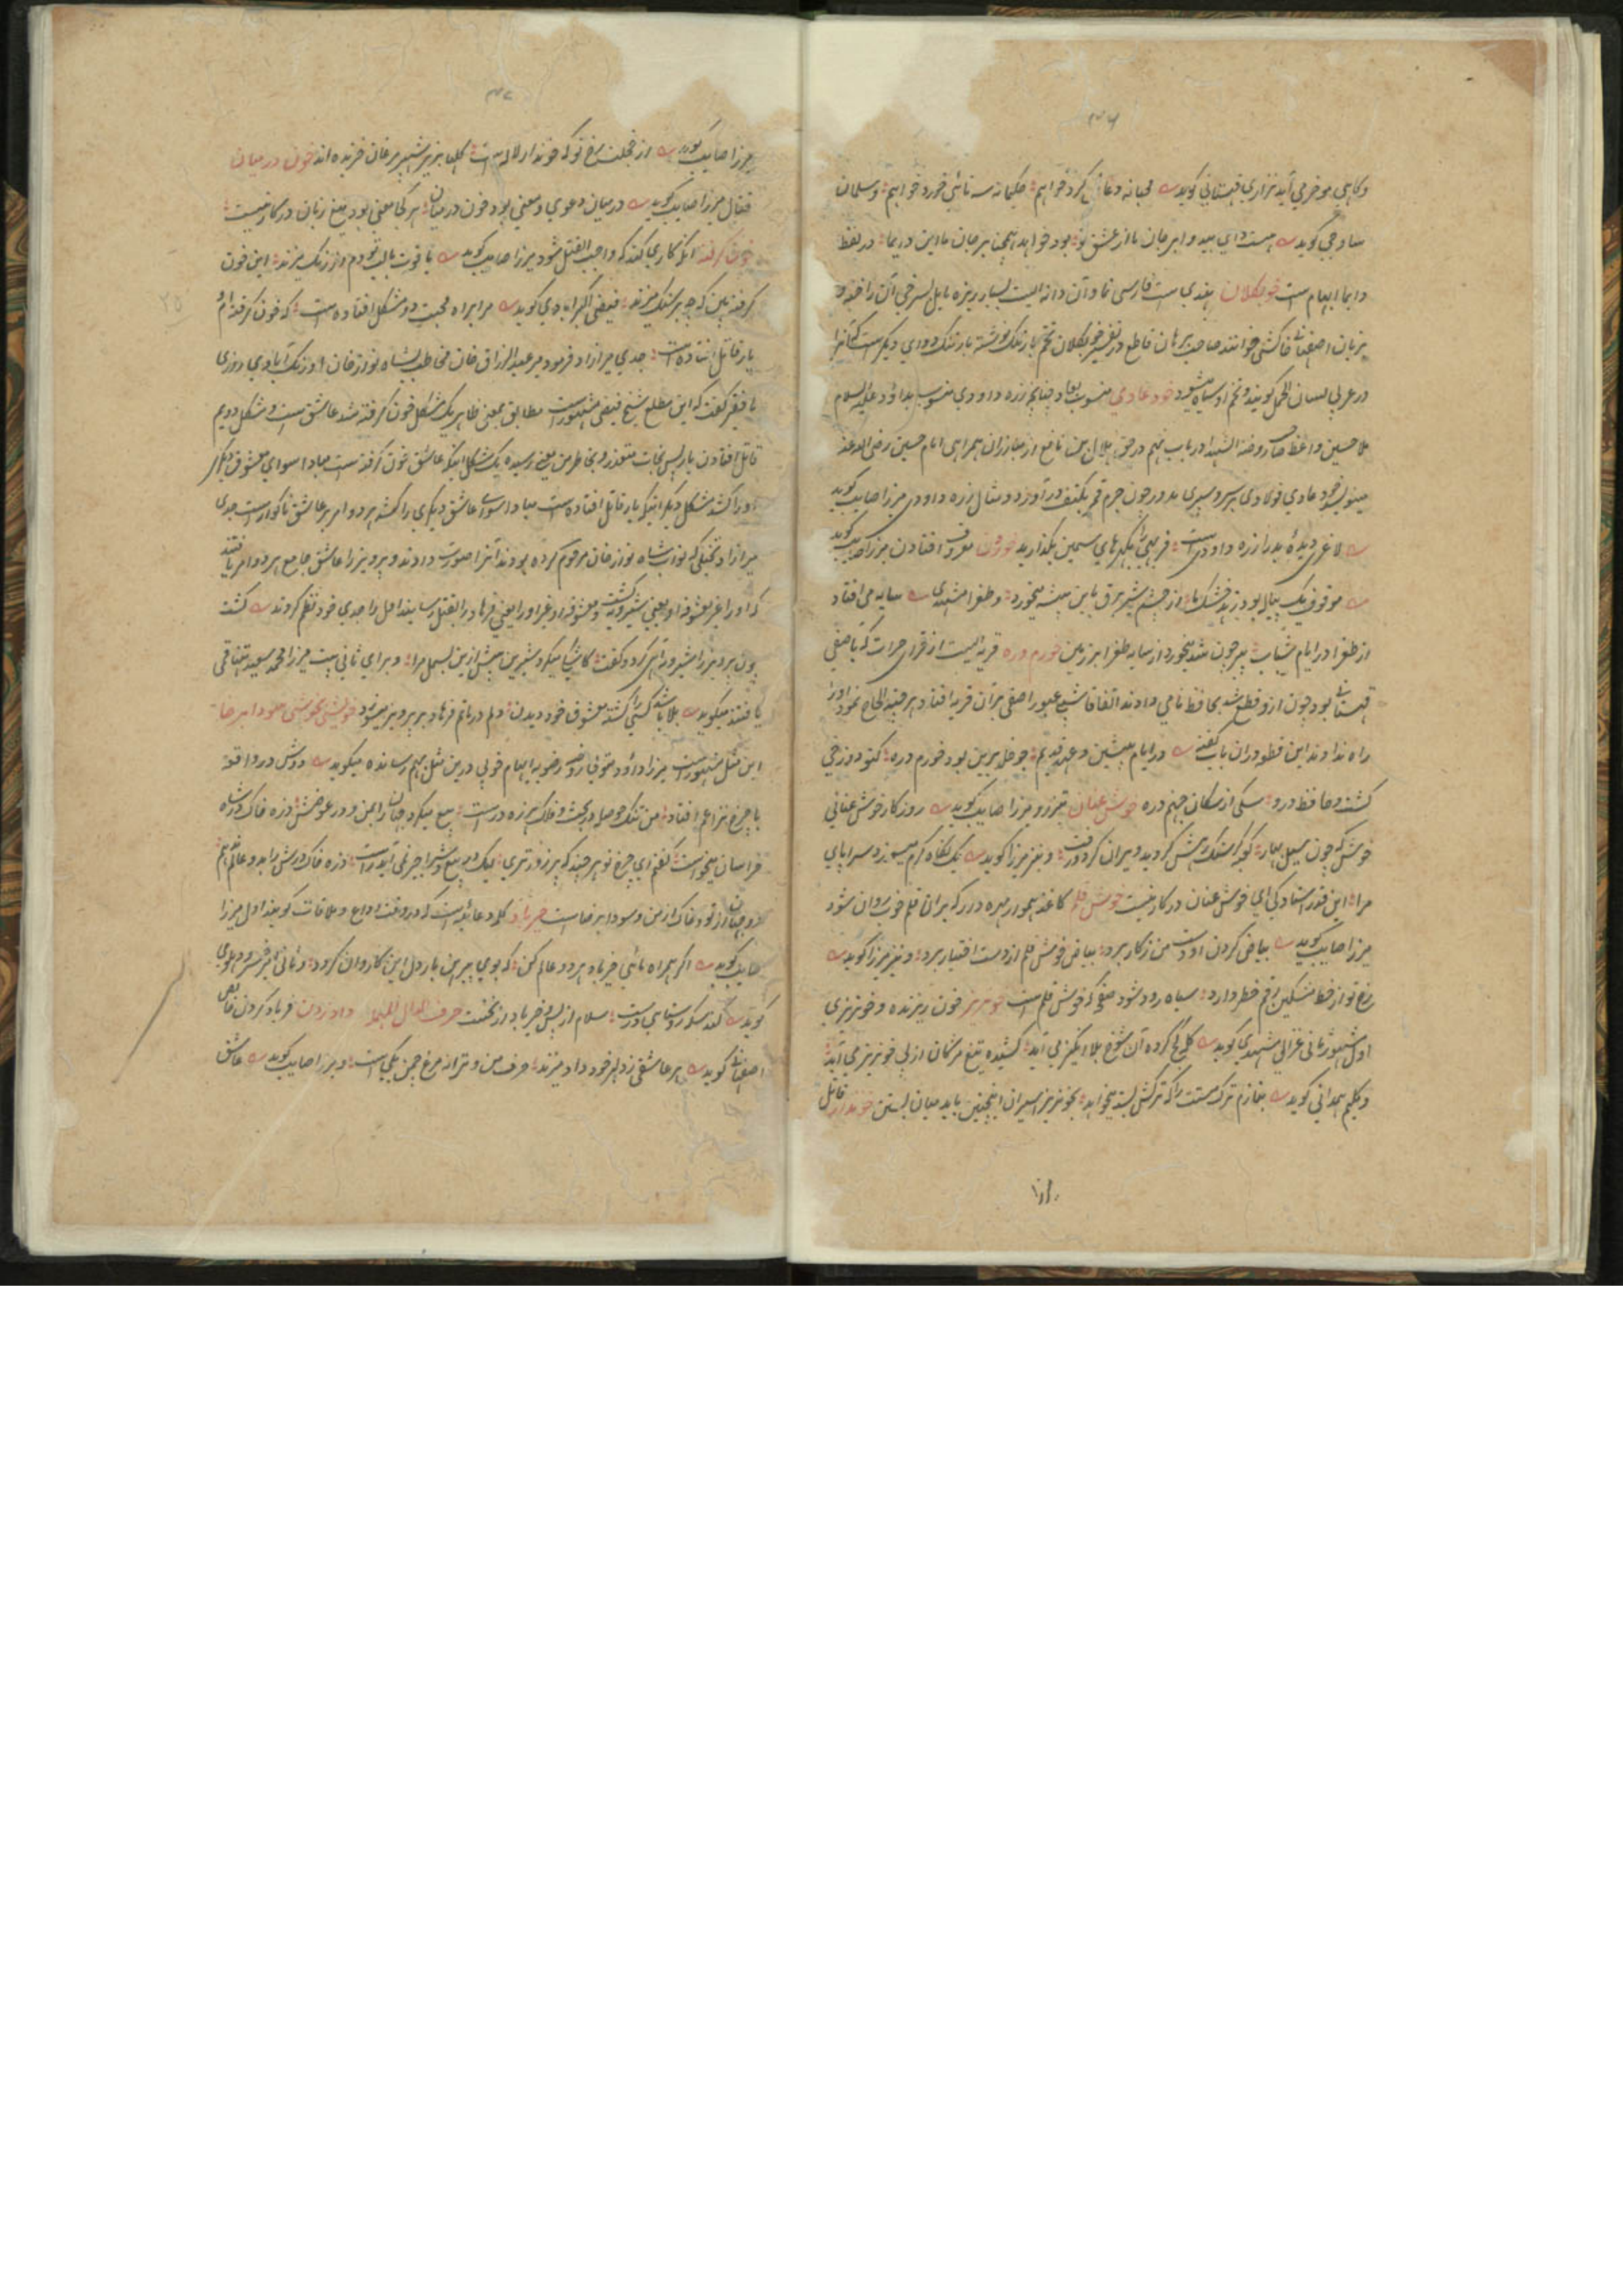 وکاهی موخر می آید نزاری قهستانی کوید محبانه دعائی کرد خواهیم حکیمانه سه تائی خورد خواهیم وسلمان
ساوجی کوید هست دایی بید و ابر جان ما از عشق تو بود خواهد همچنین بر جان ما این دایما در لفظ
دایما ابهام است خوبکلان بهندی ست فارسی نما وآن دانه ایست بسیار ریزه مایل بسرخی آن را خفه و
بزبان اصفهان خاکشی خوانند صاحب برهان قاطع در تفسیر خوبکلان تخم بارتنک نوشته بارتنک دوای دیکرست که آنرا
در عربی لسان الحمل کویند وتخم او سیاه میشود خود عادی منسوب بعاد چنانچه زره داودی منسوب بداؤد علیه السلام
ملا حسین واعظ صاحب روضة الشهدا در باب نهم در حق هلال بن نافع از مبارزان همراهی امام حسین رضی الله عنه
مینویسد خود عادی فولادی بر سر وسپری مدور چون جرم قمر بکتف در آورد ودمثال زره داودی میرزا صایب کوید
لاغری دیده بدر از زره داودی است فربهی را بکمرهای سیمین بکذارید خوردن معروف افتادن میرزا صایب کوید
موقوف یک پیاله بود زهد خشک ما از چشم شیر برق باین بیشه میخورد وطغرا مشهدی سایه می افتاد
از طغرا در ایام شباب پیر چون شد میخورد از سایه طغرا بر زمین خورم دره قریه ایست از قرای هرات که تا صفی
قهستان بود چون ازو قطع شد بحافظ نامی دادند اتفاقا شبی عبور آصفی بر آن قریه افتاد هر چند الحاح نمود او را
راه ندادند این قطعه دران باب کفته در ایام پیشین وعهد قدیم چو خلد برین بود خورم دره کنون دوزخی
کشت وحافظ درو سکی از سکان جهنم دره خوش عنان تیزرو میرزا صایب کوید روزکار خوش عنانی
خوش که چون سیل بهار کوبه سنک رهش کردید ویران کرد ورفت ونیز میرزا کوید یک نکاه کرم میسوزد سراپای
مرا این قدر استادکی ای خوش عنان در کار نیست خوش قلم کاغذ هموار مهره دار که بران قلم خوب روان شود
میرزا صایب کوید بیاض کردن او دست من ز کار برد بیاض خوش قلم از دست اختیار برد ونیز میرزا کوید
رخ تو از خط مشکین رقم خطر دارد سیاه رو شود صفحه که خوش قلم است خونریز خون ریزنده وخونریزی
اول مشهور ثانی غزالی مشهدی کوید کله کج کرده آن شوخ بلا انکیز می آید کشیده تیغ مژکان از پی خونریز می آید
وحکیم همدانی کوید بنازم ترک مستت را که ترکش بسته میخواهد بخونریز اسیران اینچنین باید میان بستن خوندار قاتل
میرزا صایب کوید از خجلت رخ تو که خوندار لاله هاست کلها بزیر شهپر مرغان خزیده اند خون در میان
قتال میرزا صایب کوید در میان دعوی ومعنی بود خون در میان هر کجا معنی بود تیغ زبان در کار نیست
خون کرفته آنکه کاری کند که واجب القتل شود میرزا صایب کوید یاقوت با لب تو دم از رنک میزند این خون
کرفته بین که چه بر سنک میزند فیضی اکبرابادی کوید مرا براه محبت دو مشکل افتاده است که خون کرفته ام و
یار قاتل افتاده است جدی میر ازاد فرمود میر عبد الرزاق خان مخاطب بشاه نواز خان اورنک آبادی روزی
با فقیر کفت که این مطلع شیخ فیضی مشهورست مطابق بمعنی ظاهر یک مشکل خون کرفته شد عاشق ست ومشکل دویم
قاتل افتادن یار پس نجات متعذر وبخاطر من معنی رسیده یک مشکل اینکه عاشق خون کرفته ست مبادا سوای معشوق دیکر
اورا کشد مشکل دیکر اینکه یار قاتل افتاده است مبادا سوای عاشق دیکری را کشد هر دو امر بر عاشق ناکوارست جدی
میر ازاد تخیلی که نواب شاه نواز خان مرقوم کرده بودند آنرا صورت دادند وپرویز را عاشق جامع هر دو امر یافتند
که اورا غیر معشوقه او یعنی شیرویه کشت ومعشوقه او غیر اورا یعنی فرهاد را بقتل رسانید اول را جدی خود نظم کردند کشت
چون پرویز را شیرویه آهی کرد وکفت کاشکی میکرد شیرین پیش ازین بسمل مرا وبرای ثانی بیت میرزا محمد سعید
یافتند میکوید بلا باشد کسی را کشته معشوق خود دیدن دلم در ماتم فرهاد بر پرویز میسوزد خویشی بخویشی سودا برضا
این مثل مشهورست میرزا داؤد متولی روضه رضویه ابهام خوبی درین مثل بهم رسانده میکوید دوش در واقعه
با چرخ نزاعم افتاد من تنک حوصله در بحث وفلک هرزه درست بیع میکرد خراسان را بمن ودر عوضش ذره خاک در شاه
خراسان میخواست کفتم ای چرخ تو هر چند که پر زور تری لیک در بیع وشرا جبر نمی آید راست ذره خاک درش را بدو عالم ندهم
دو جهان از تو وخاک از من وسودا برضاست خیر باد کلمه دعائیه ایست که در وقت وداع وملاقات کویند اول میرزا
صایب کوید اکر همراه مائی خیر باد هر دو عالم کن که بوی پیرهن بار دل این کاروان کردد وثانی امیر خسرو دهلوی
کوید سلام از پس خیر باد از نخست حرف الدال المهملة داد زدن فریاد کردن
اصفهانی کوید هر عاشقی ز دلبر خود داد میزند حرف من وترانه مرغ چمن یکی است ومیرزا صایب کوید عاشق